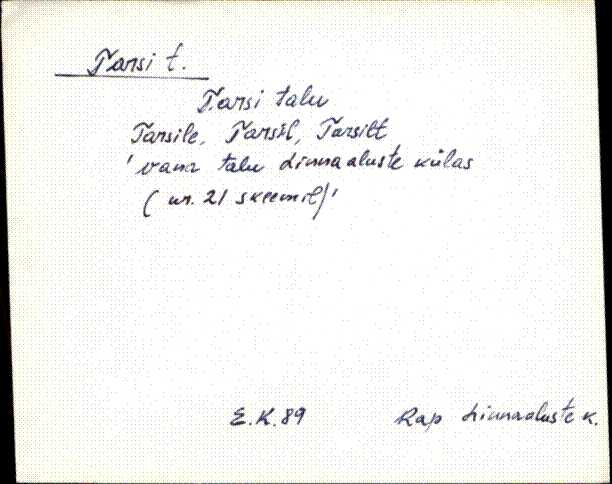 Tarsi t.
Tarsi talu
Tarsile, Tarsil, Tarsilt
'vana talu Linnaaluste külas
(nr. 21 skeemil)'
E.K.89 Rap Linnaaluste k.